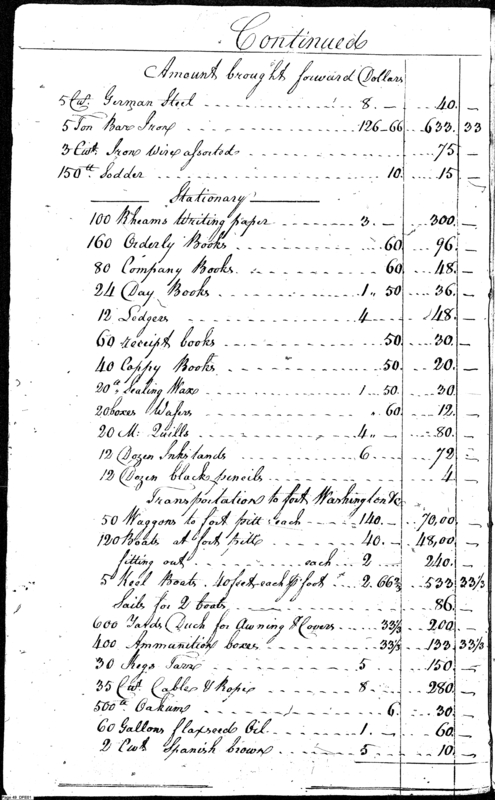 Continued
Amount brought forward Dollars
5 Cwt. German Steel 8. — 40. —
5 Ton Bar Iron 126-66 633. 33
3 Cwt. Iron Wire assorted 75 —
150 lb. Sodder 10 15 —
Stationary
100 Rheams Writing paper 3. — 300. —
160 Orderly Books 60. 96. —
80 Company Books. 60. 48. —
24 Day Books 1 " 50 36. —
12 Ledgers 4 48. —
60 receipt books 50. 30. —
40 Coppy Books 50. 20. —
20 lb. Sealing Wax 1 50. 30 —
20 boxes Wafers " 60. 12. —
20 M: Quills 4 " — 80. —
12 Dozen Inkstands 6 72 —
12 Dozen black pencils 4 —
Transportation to fort Washington &c
50 Waggons to fort pitt each 140. 70,00. —
120 Boats at fort pitt 40. — 48,00. —
fitting out each 2 240. —
5 Keel Boats. 40 feet each foot " 2. 66 2/3 533 33 1/3
Sails for 2 boats 86. —
600 Yards Duck for Awning & Covers 33 1/3 200. —
400 Ammunition boxes 33 1/3 133. 33 1/3
30 Kegs Tarr 5 150 —
35 Cwt. Cable & Rope 8 280. —
500 lb. Oakum 6. 30 —
60 Gallons flaxseed Oil 1. — 60. —
2 Cwt. Spanish brown 5 10. —
Page 49